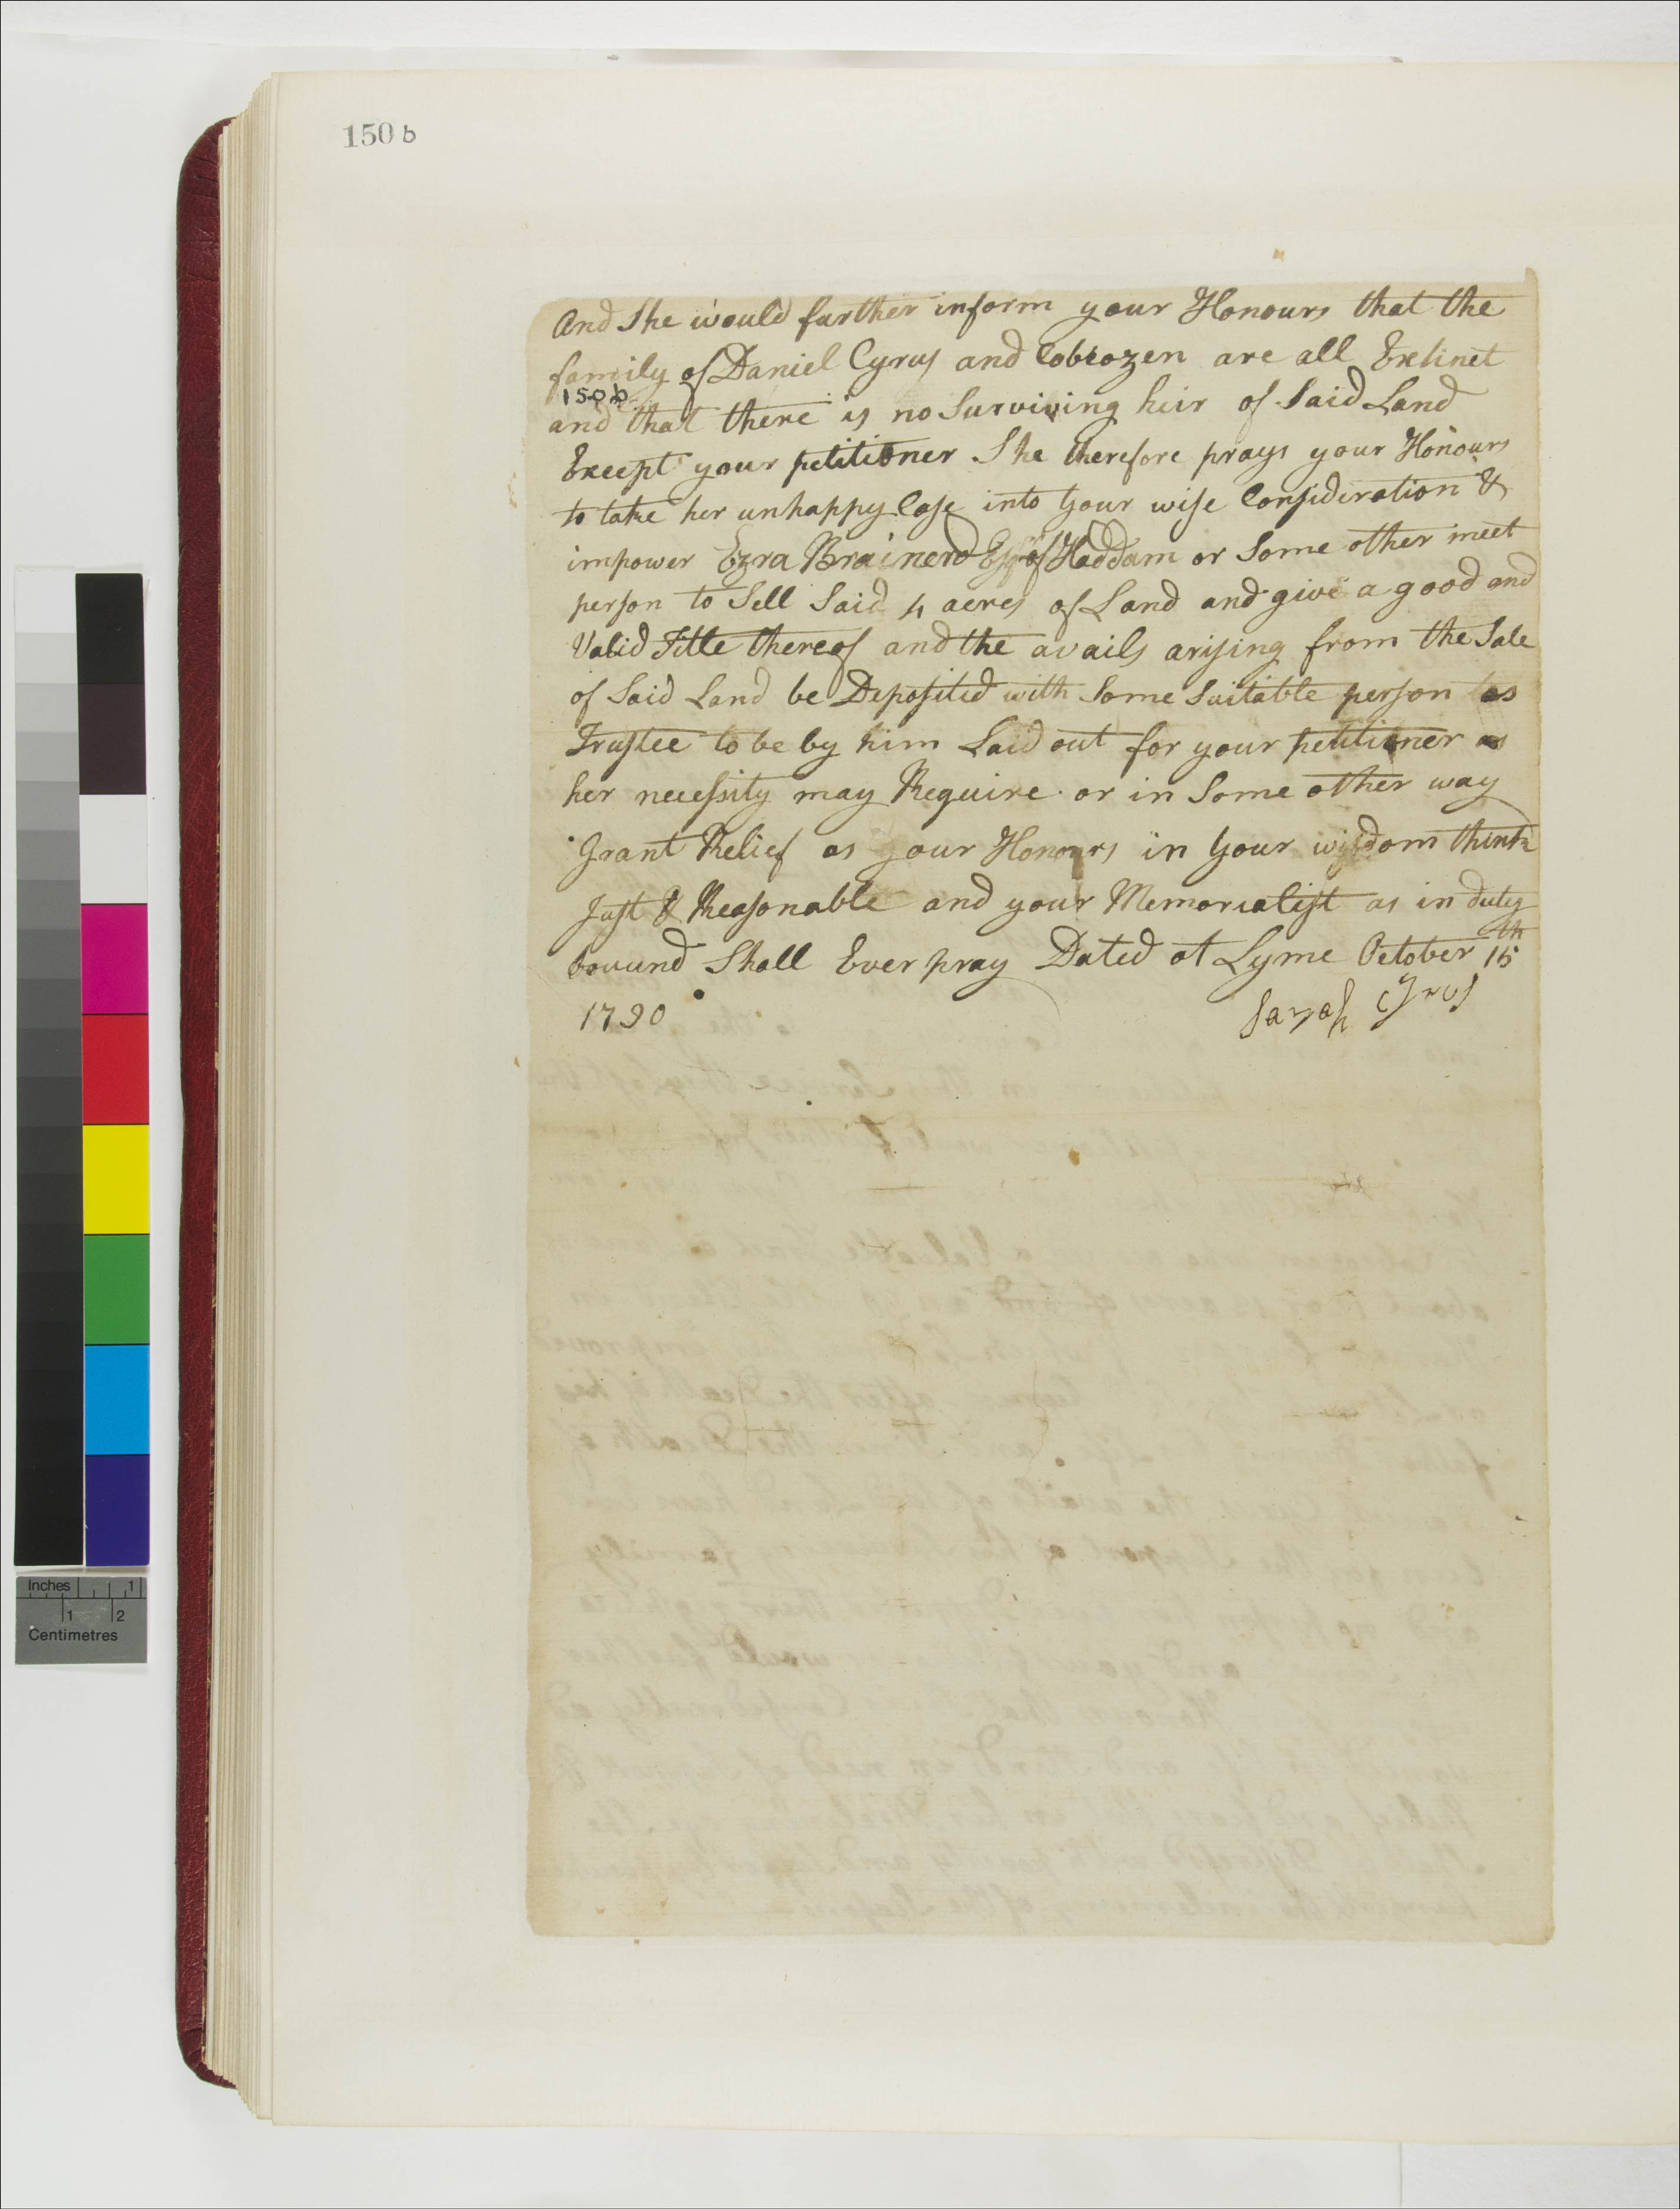 150 b
And She would further inform your Honours that the
family of Daniel Cyrus and Cobcozen are all Extinct
150 b.
and that there is no Surviving heir of Said Land
Except your petitioner She therefore prays your Honours
to take her unhappy Case into your wise Consideration &
impower Ezra Brainerd Esqr of Haddam or Some other meet
person to Sell Said 4 acres of Land and give a good and
Valid Title thereof and the avails arising from the Sale
of Said Land be Deposited with Some Suitable person as
Trustee to be by him Laid out for your petitioner as
her necessity may Require or in Some other way
Grant Relief as your Honours in your wisdom think
Just & Reasonable and your Memorialist as in duty
bound Shall Ever pray Dated at Lyme October 15th
1790
Sarah Cyrus
Inches 1
1 2
Centimetres